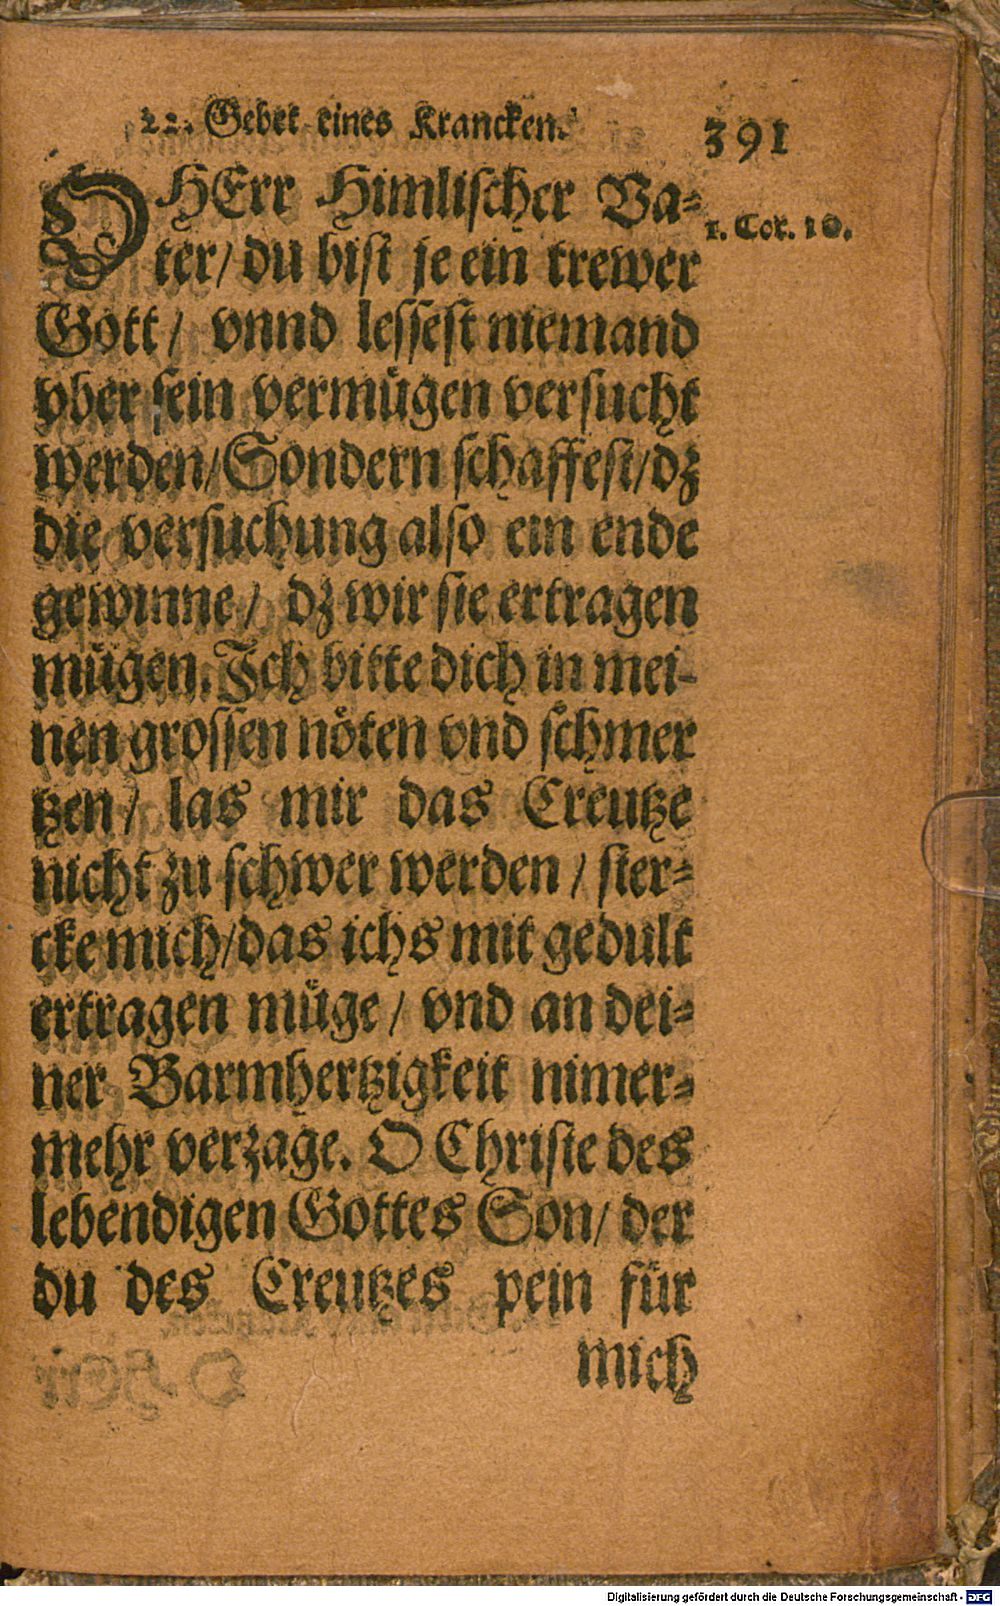 22. Gebet eines Krancken. 391
O HErr Himlischer Va-
ter/ du bist je ein trewer
Gott/ vnnd lessest niemand
vber sein vermügen versucht
werden/ Sondern schaffest/ dz
die versuchung also ein ende
gewinne/ dz wir sie ertragen
mügen. Ich bitte dich in mei-
nen grossen nöten vnd schmer
tzen/ las mir das Creutze
nicht zu schwer werden/ ster-
cke mich/ das ichs mit gedult
ertragen müge/ vnd an dei-
ner Barmhertzigkeit nimer-
mehr verzage. O Christe des
lebendigen Gottes Son/ der
du des Creutzes pein für
mich
1. Cor. 10.
Digitalisierung gefördert durch die Deutsche Forschungsgemeinschaft - DFG